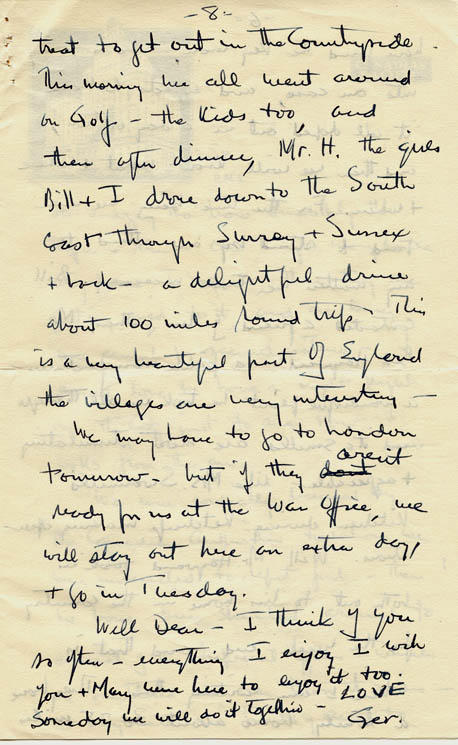 -8-
treat to get out in the Countryside.
This morning we all went around
on Golf - the Kids too, and
then after dinner, Mr. H. the girls
Bill + I drove down to the South
Coast through Surrey + Sussex
+ back - a delightful drive
about 100 miles round trip. This
is a very beautiful part of England
the villages are very interesting -
We may have to go to London
tomorrow - but if they dont arent
ready for us at the War Office, we
will stay out here an extra day,
+ go in Tuesday.
Well Dear - I think of you
so often - everything I enjoy I wish
you + Mary were here to enjoy it too.
Someday we will do it together - LOVE
Ger.